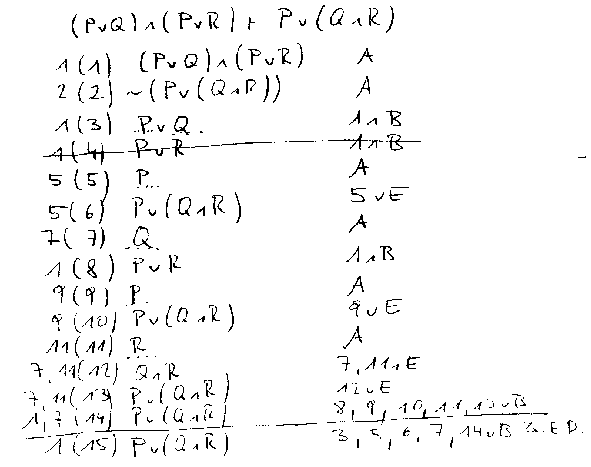 (P∨Q)∧(P∨R) ⊢ P∨(Q∧R)
1 (1) (P∨Q)∧(P∨R) A
2 (2) ~(P∨(Q∧R)) A
1 (3) P∨Q. 1∧B
1 (4) P∨R 1∧B
5 (5) P... A
5 (6) P∨(Q∧R) 5∨E
7 (7) Q A
1 (8) P∨R 1∧B
9 (9) P. A
9 (10) P∨(Q∧R) 9∨E
11 (11) R A
7, 11 (12) Q∧R 7, 11∧E
7, 11 (13) P∨(Q∧R) 12∨E
1, 7 (14) P∨(Q∧R) 8, 9, 10, 11, 13∨B
1 (15) P∨(Q∧R) 3, 5, 6, 7, 14∨B Q.E.D.